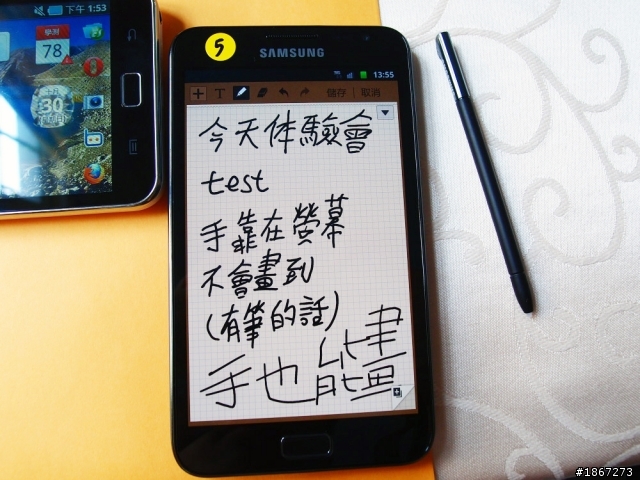 下午 1:53
學測
78
30
5
SAMSUNG
13:55
T 儲存 取消
今天体驗會
test
手靠在螢幕
不會畫到
(有筆的話)
手也能畫
#1867273